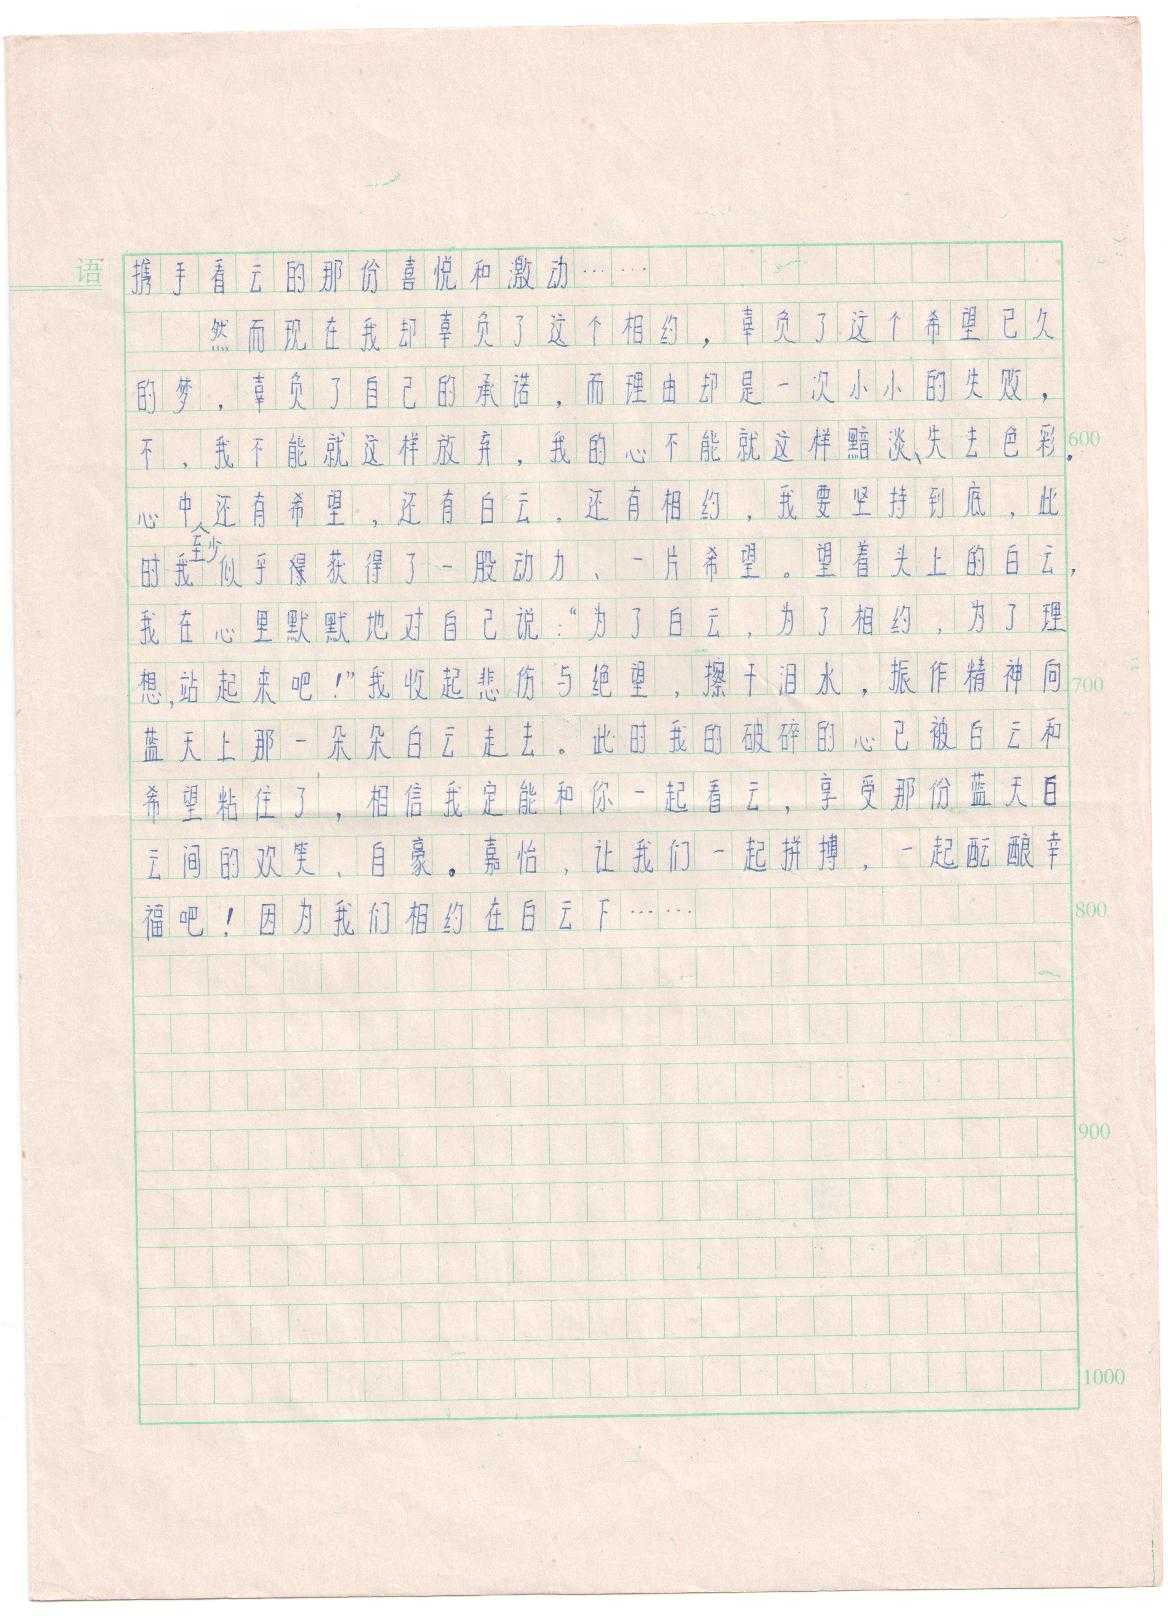 语
携手看云的那份喜悦和激动……
然而现在我却辜负了这个相约，辜负了这个希望已久
的梦，辜负了自己的承诺，而理由却是一次小小的失败，
不，我不能就这样放弃，我的心不能就这样黯淡、失去色彩。
600
心中还有希望，还有白云，还有相约，我要坚持到底，此
至少
时我似乎得获得了一股动力、一片希望。望着头上的白云，
我在心里默默地对自己说：“为了白云，为了相约，为了理
想，站起来吧！”我收起悲伤与绝望，擦干泪水，振作精神向
700
蓝天上那一朵朵白云走去。此时我的破碎的心已被白云和
希望粘住了，相信我定能和你一起看云，享受那份蓝天白
云间的欢笑、自豪。嘉怡，让我们一起拼搏，一起酝酿幸
福吧！因为我们相约在白云下……
800
900
1000